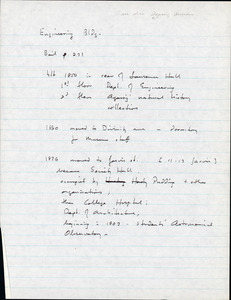 see also Agassiz Museum
Engineering Bldg.
Bail p 271
blt 1850 in rear of Lawrence Hall
1st floor Dept. of Engineering
2d floor Agassiz' natural history
collection
1860 moved to Divinity ave - dormitory
for museum staff
1876 moved to Jarvis st.
became Society Hall
occupied by Hasty Pudding & other
organizations,
then College Hospital,
Dept. of Architecture,
beginning in 1902 - Students' Astronomical
Observatory -